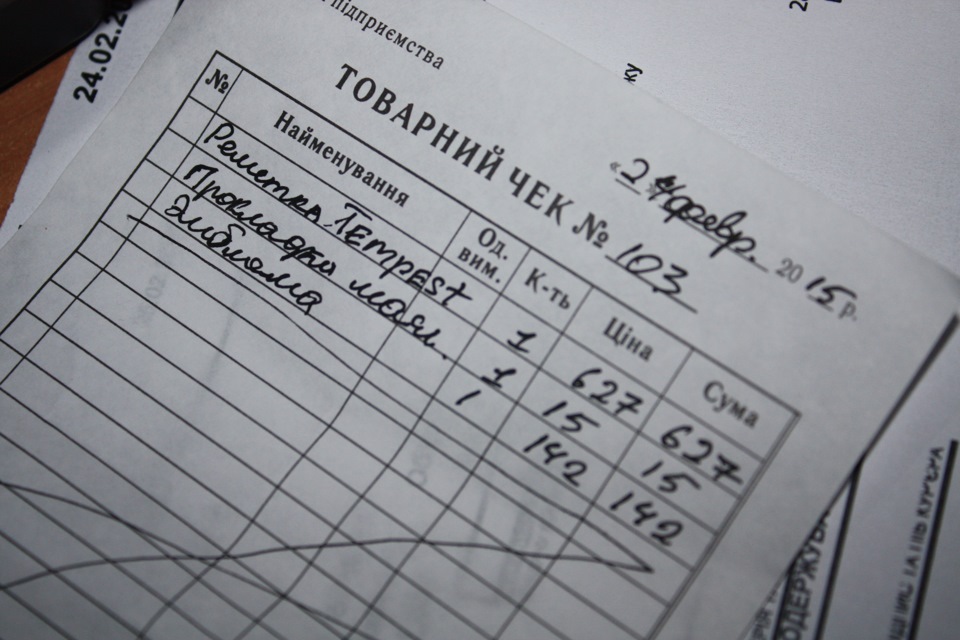 підприємства
24.02.2
ТОВАРНИЙ ЧЕК № 103
«24» февр. 2015 р.
№ Найменування Од. вим. К-ть Ціна Сума
Решетка Tempest 1 627 627
Прокладка маял. 1 15 15
Эмблема 1 142 142
ОДЕРЖУВА